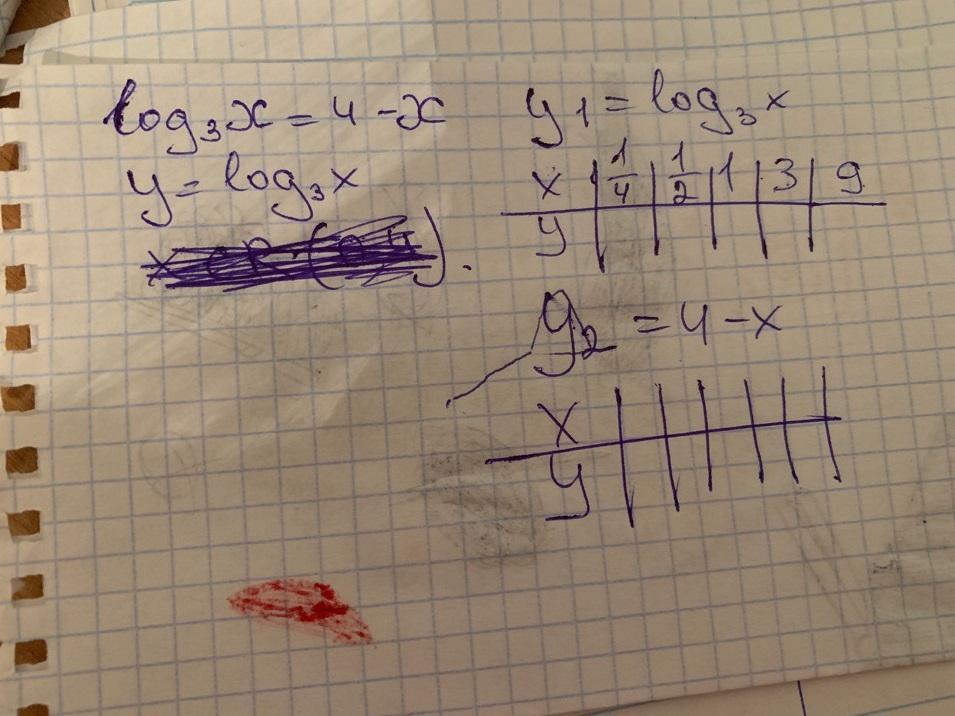 log₃x = 4 - x
y = log₃x
y₁ = log₃x
x | 1/4 | 1/2 | 1 | 3 | 9
y
y₂ = 4 - x
x
y